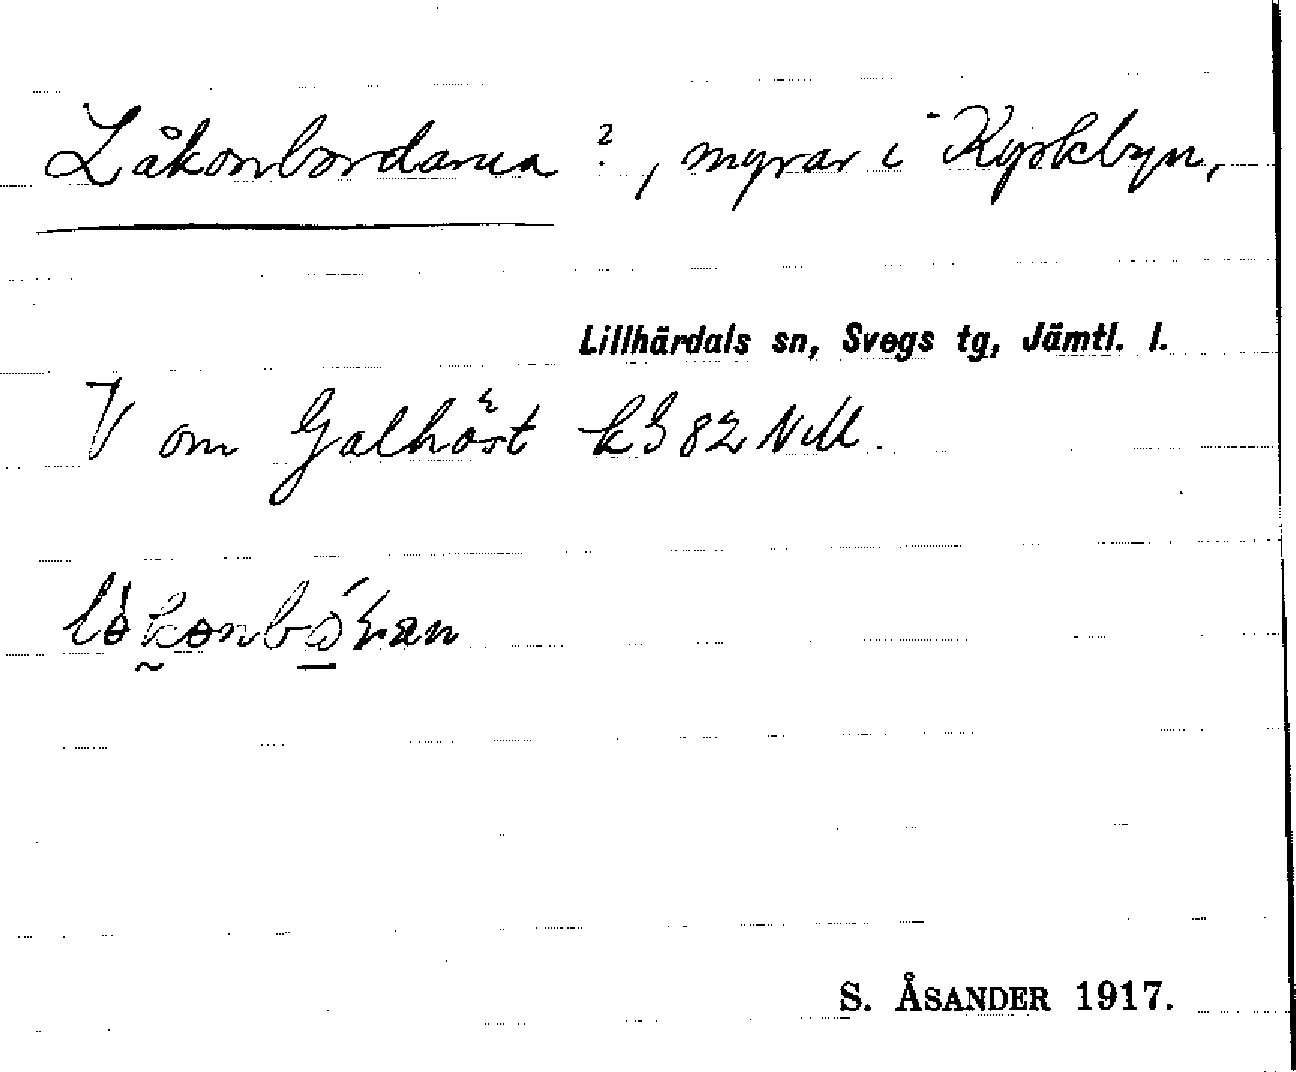 Låkonbordarna ?, myrar i Kyrkbyn,
Lillhärdals sn, Svegs tg, Jämtl. l.
V om Galhöst k382 NM.
S. ÅSANDER 1917.